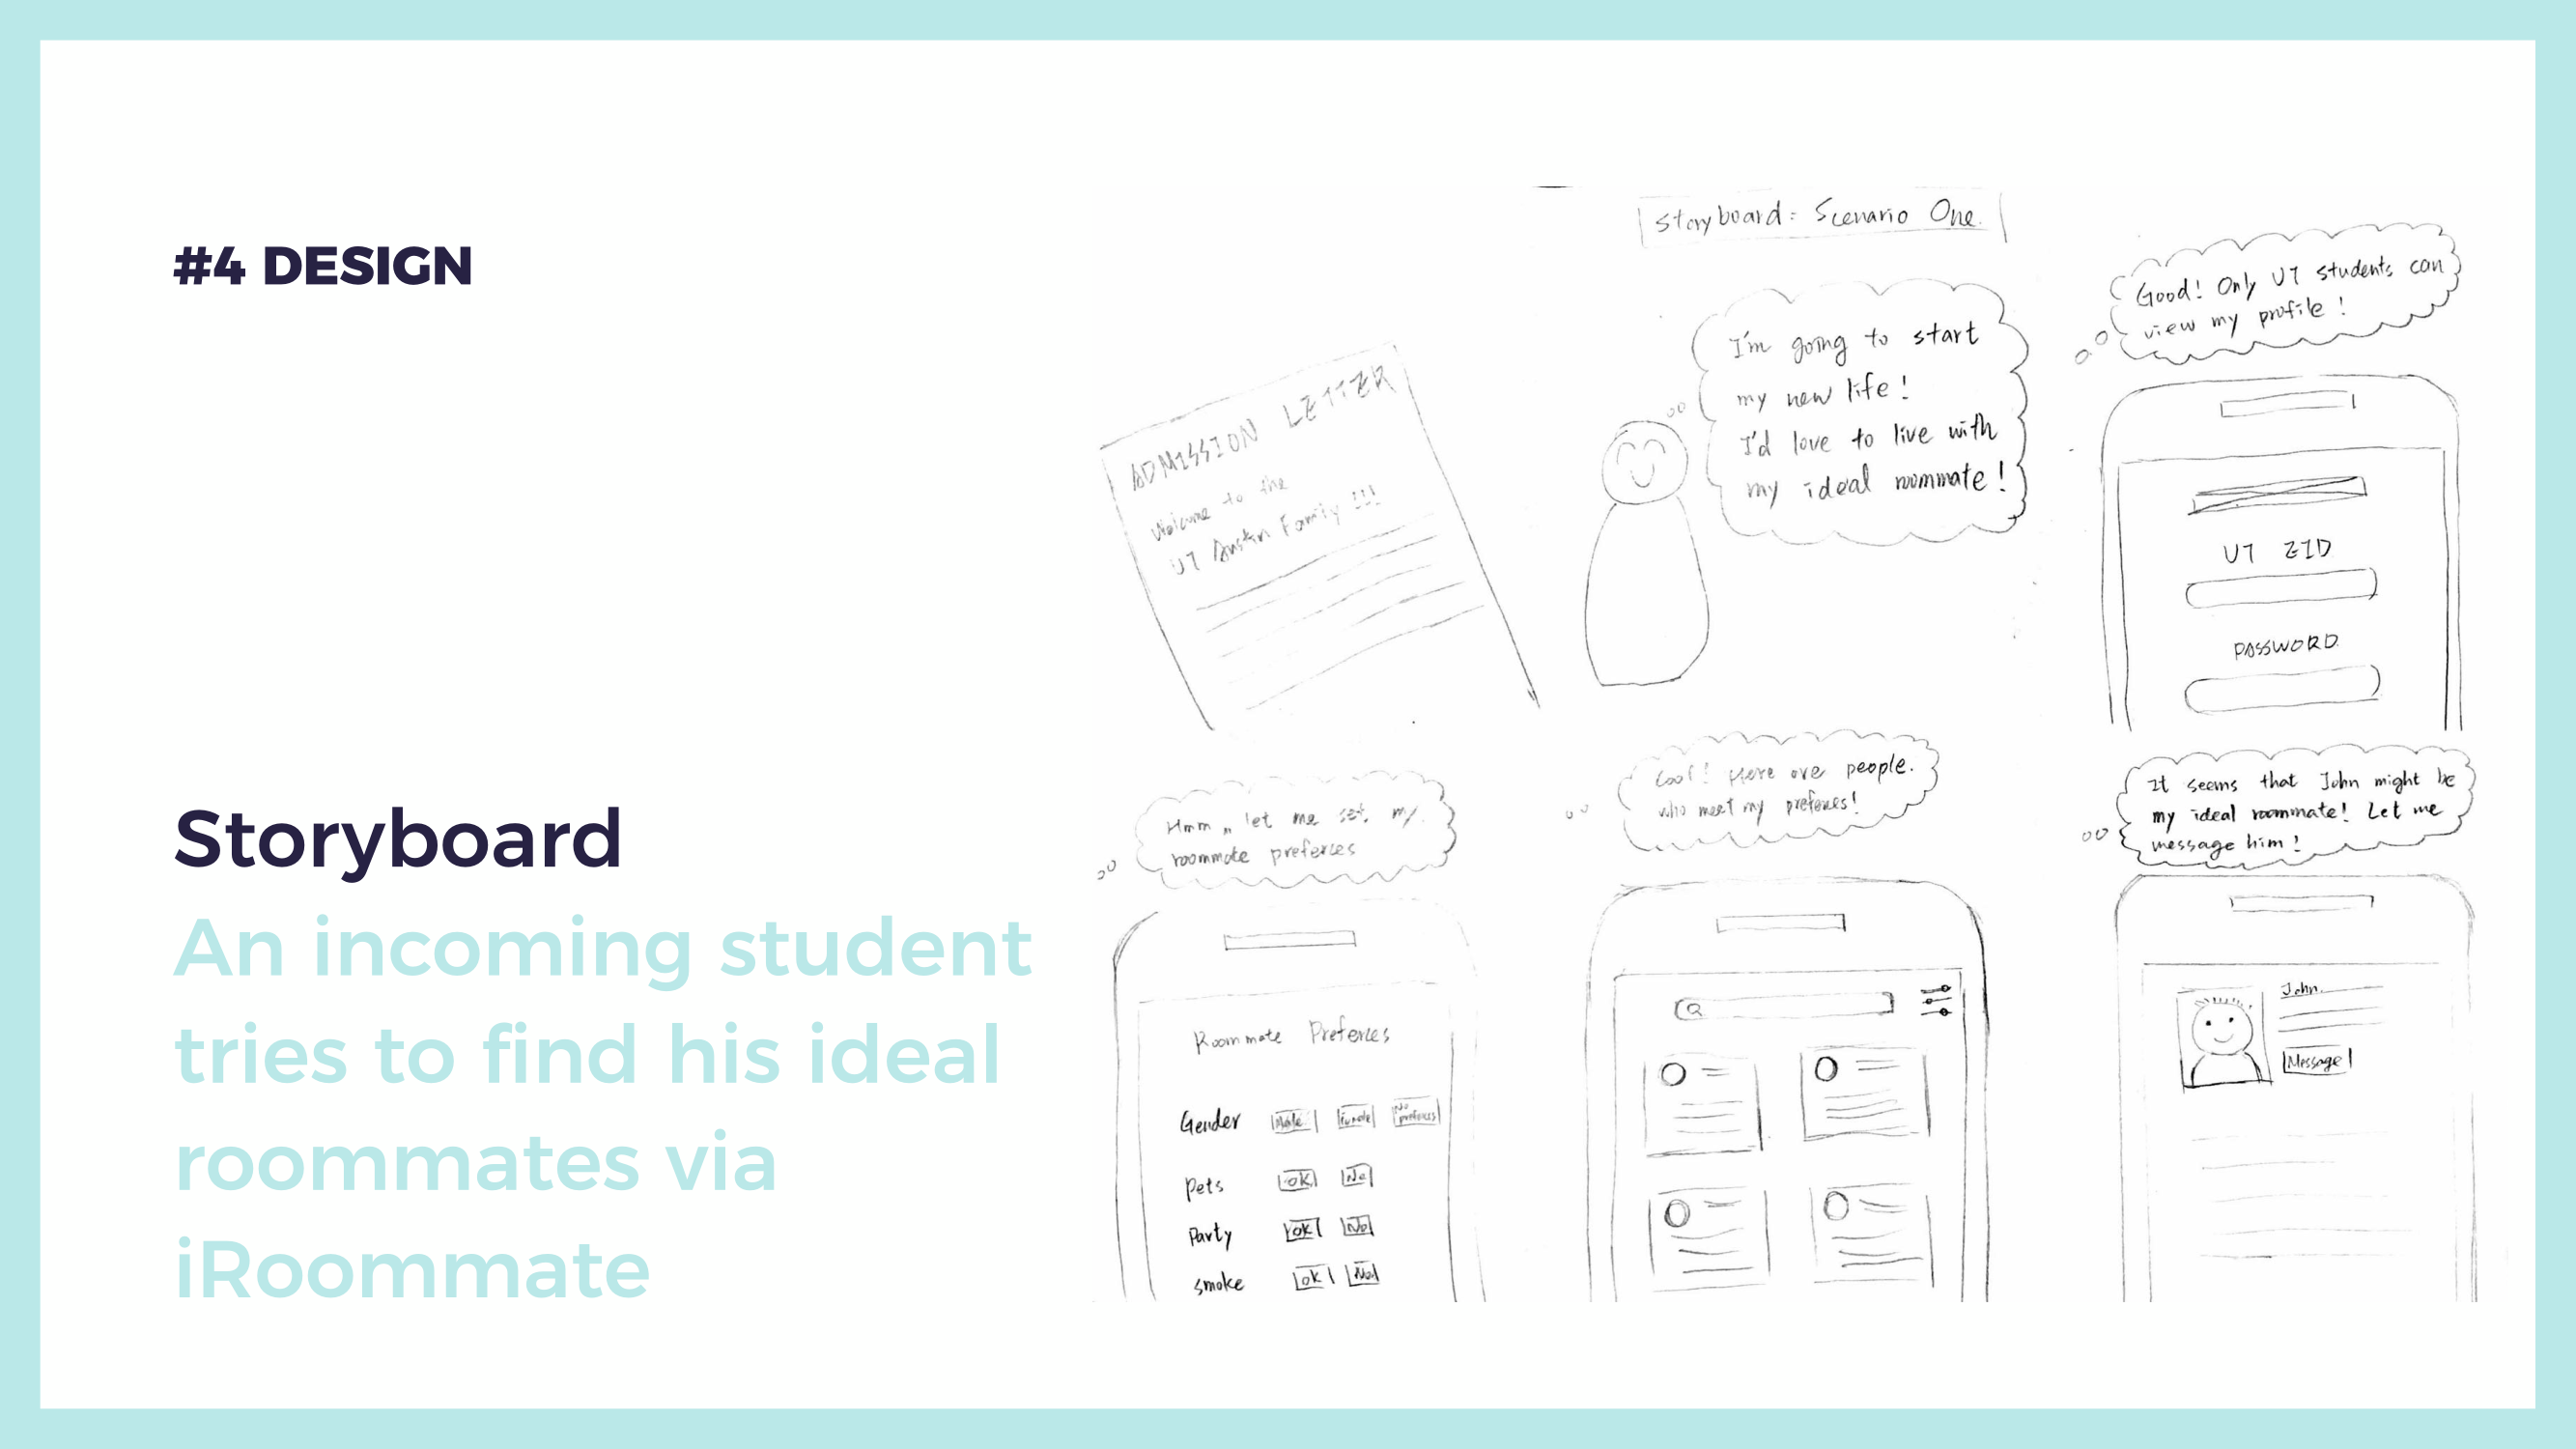 #4 DESIGN
Storyboard
An incoming student
tries to find his ideal
roommates via
iRoommate
Storyboard: Scenario One.
ADMISSION LETTER
Welcome to the
UT Austin Family !!!
I'm going to start
my new life!
I'd love to live with
my ideal roommate!
Good! Only UT students can
view my profile!
UT EID
PASSWORD
Hmm, let me set my
roommate prefereces
Roommate Prefereces
Gender Male Female No prefereces
Pets OK No
Party OK No
smoke OK No
Cool! Here are people.
who meet my prefereces!
It seems that John might be
my ideal roommate! Let me
message him!
John
Message